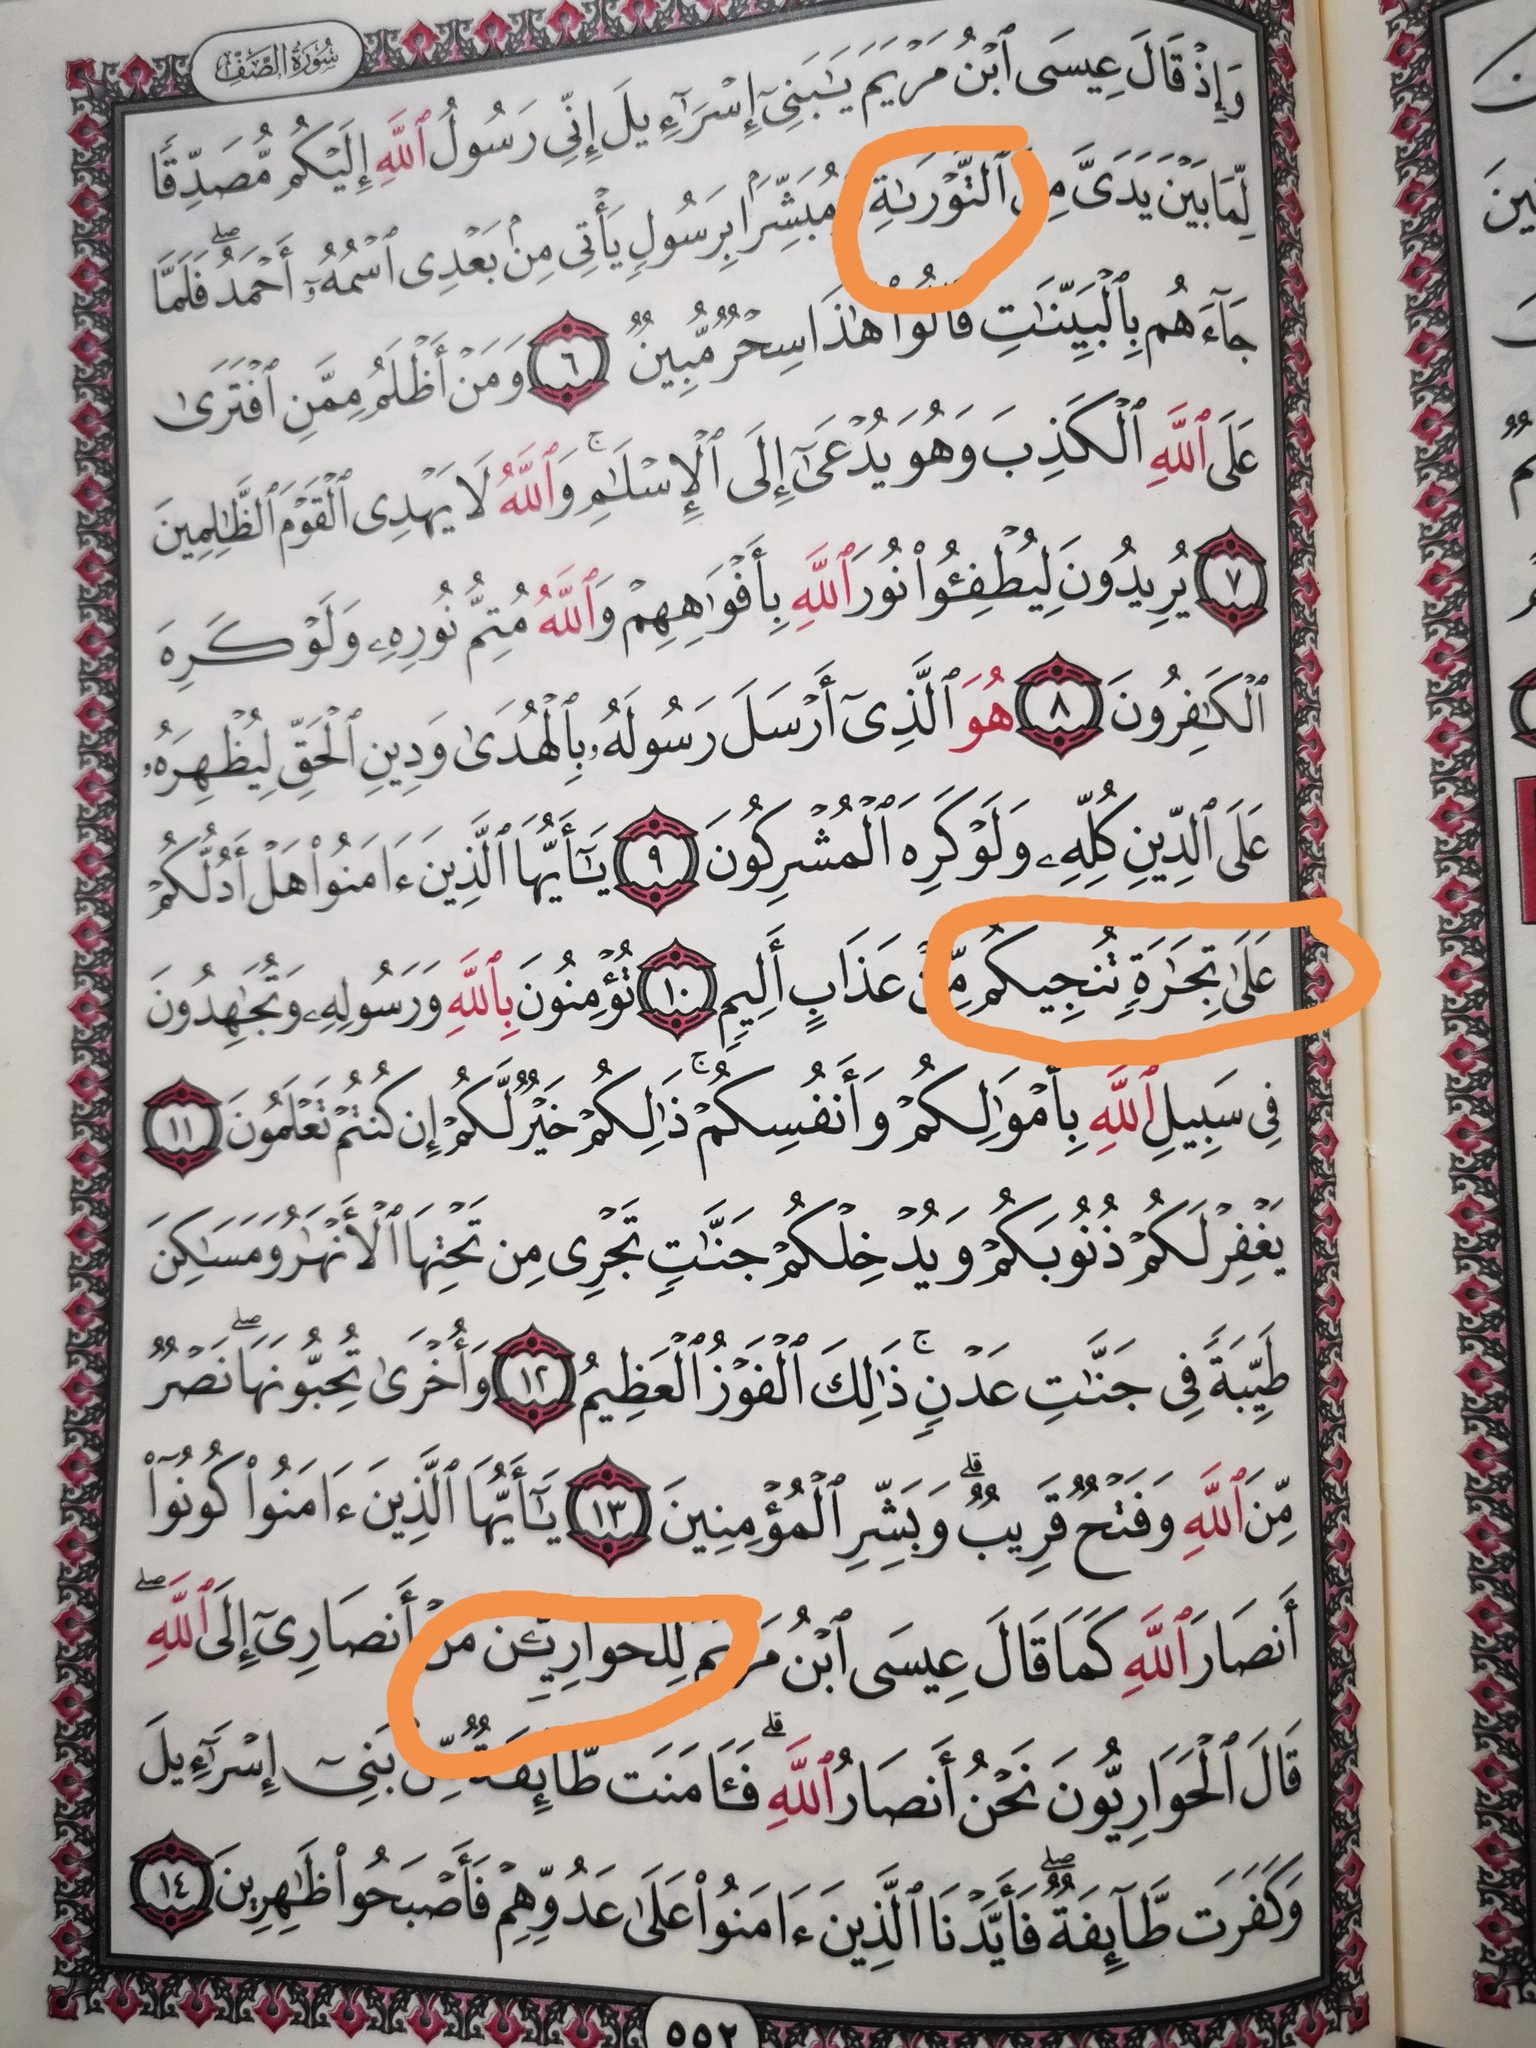 سُورَةُ الصَّفِّ
وَإِذْ قَالَ عِيسَى ٱبْنُ مَرْيَمَ يَـٰبَنِىٓ إِسْرَٰٓءِيلَ إِنِّى رَسُولُ ٱللَّهِ إِلَيْكُم مُّصَدِّقًا
لِّمَا بَيْنَ يَدَىَّ مِنَ ٱلتَّوْرَىٰةِ وَمُبَشِّرًۢا بِرَسُولٍ يَأْتِى مِنۢ بَعْدِى ٱسْمُهُۥٓ أَحْمَدُ ۖ فَلَمَّا
جَآءَهُم بِٱلْبَيِّنَـٰتِ قَالُوا۟ هَـٰذَا سِحْرٌ مُّبِينٌ ٦ وَمَنْ أَظْلَمُ مِمَّنِ ٱفْتَرَىٰ
عَلَى ٱللَّهِ ٱلْكَذِبَ وَهُوَ يُدْعَىٰٓ إِلَى ٱلْإِسْلَـٰمِ ۚ وَٱللَّهُ لَا يَهْدِى ٱلْقَوْمَ ٱلظَّـٰلِمِينَ
٧ يُرِيدُونَ لِيُطْفِـُٔوا۟ نُورَ ٱللَّهِ بِأَفْوَٰهِهِمْ وَٱللَّهُ مُتِمُّ نُورِهِۦ وَلَوْ كَرِهَ
ٱلْكَـٰفِرُونَ ٨ هُوَ ٱلَّذِىٓ أَرْسَلَ رَسُولَهُۥ بِٱلْهُدَىٰ وَدِينِ ٱلْحَقِّ لِيُظْهِرَهُۥ
عَلَى ٱلدِّينِ كُلِّهِۦ وَلَوْ كَرِهَ ٱلْمُشْرِكُونَ ٩ يَـٰٓأَيُّهَا ٱلَّذِينَ ءَامَنُوا۟ هَلْ أَدُلُّكُمْ
عَلَىٰ تِجَـٰرَةٍ تُنجِيكُم مِّنْ عَذَابٍ أَلِيمٍ ١٠ تُؤْمِنُونَ بِٱللَّهِ وَرَسُولِهِۦ وَتُجَـٰهِدُونَ
فِى سَبِيلِ ٱللَّهِ بِأَمْوَٰلِكُمْ وَأَنفُسِكُمْ ۚ ذَٰلِكُمْ خَيْرٌ لَّكُمْ إِن كُنتُمْ تَعْلَمُونَ ١١
يَغْفِرْ لَكُمْ ذُنُوبَكُمْ وَيُدْخِلْكُمْ جَنَّـٰتٍ تَجْرِى مِن تَحْتِهَا ٱلْأَنْهَـٰرُ وَمَسَـٰكِنَ
طَيِّبَةً فِى جَنَّـٰتِ عَدْنٍ ۚ ذَٰلِكَ ٱلْفَوْزُ ٱلْعَظِيمُ ١٢ وَأُخْرَىٰ تُحِبُّونَهَا ۖ نَصْرٌ
مِّنَ ٱللَّهِ وَفَتْحٌ قَرِيبٌ ۗ وَبَشِّرِ ٱلْمُؤْمِنِينَ ١٣ يَـٰٓأَيُّهَا ٱلَّذِينَ ءَامَنُوا۟ كُونُوٓا۟
أَنصَارَ ٱللَّهِ كَمَا قَالَ عِيسَى ٱبْنُ مَرْيَمَ لِلْحَوَارِيِّـۧنَ مَنْ أَنصَارِىٓ إِلَى ٱللَّهِ ۖ
قَالَ ٱلْحَوَارِيُّونَ نَحْنُ أَنصَارُ ٱللَّهِ ۗ فَـَٔامَنَت طَّآئِفَةٌ مِّنۢ بَنِىٓ إِسْرَٰٓءِيلَ
وَكَفَرَت طَّآئِفَةٌ ۖ فَأَيَّدْنَا ٱلَّذِينَ ءَامَنُوا۟ عَلَىٰ عَدُوِّهِمْ فَأَصْبَحُوا۟ ظَـٰهِرِينَ ١٤
٥٥٢